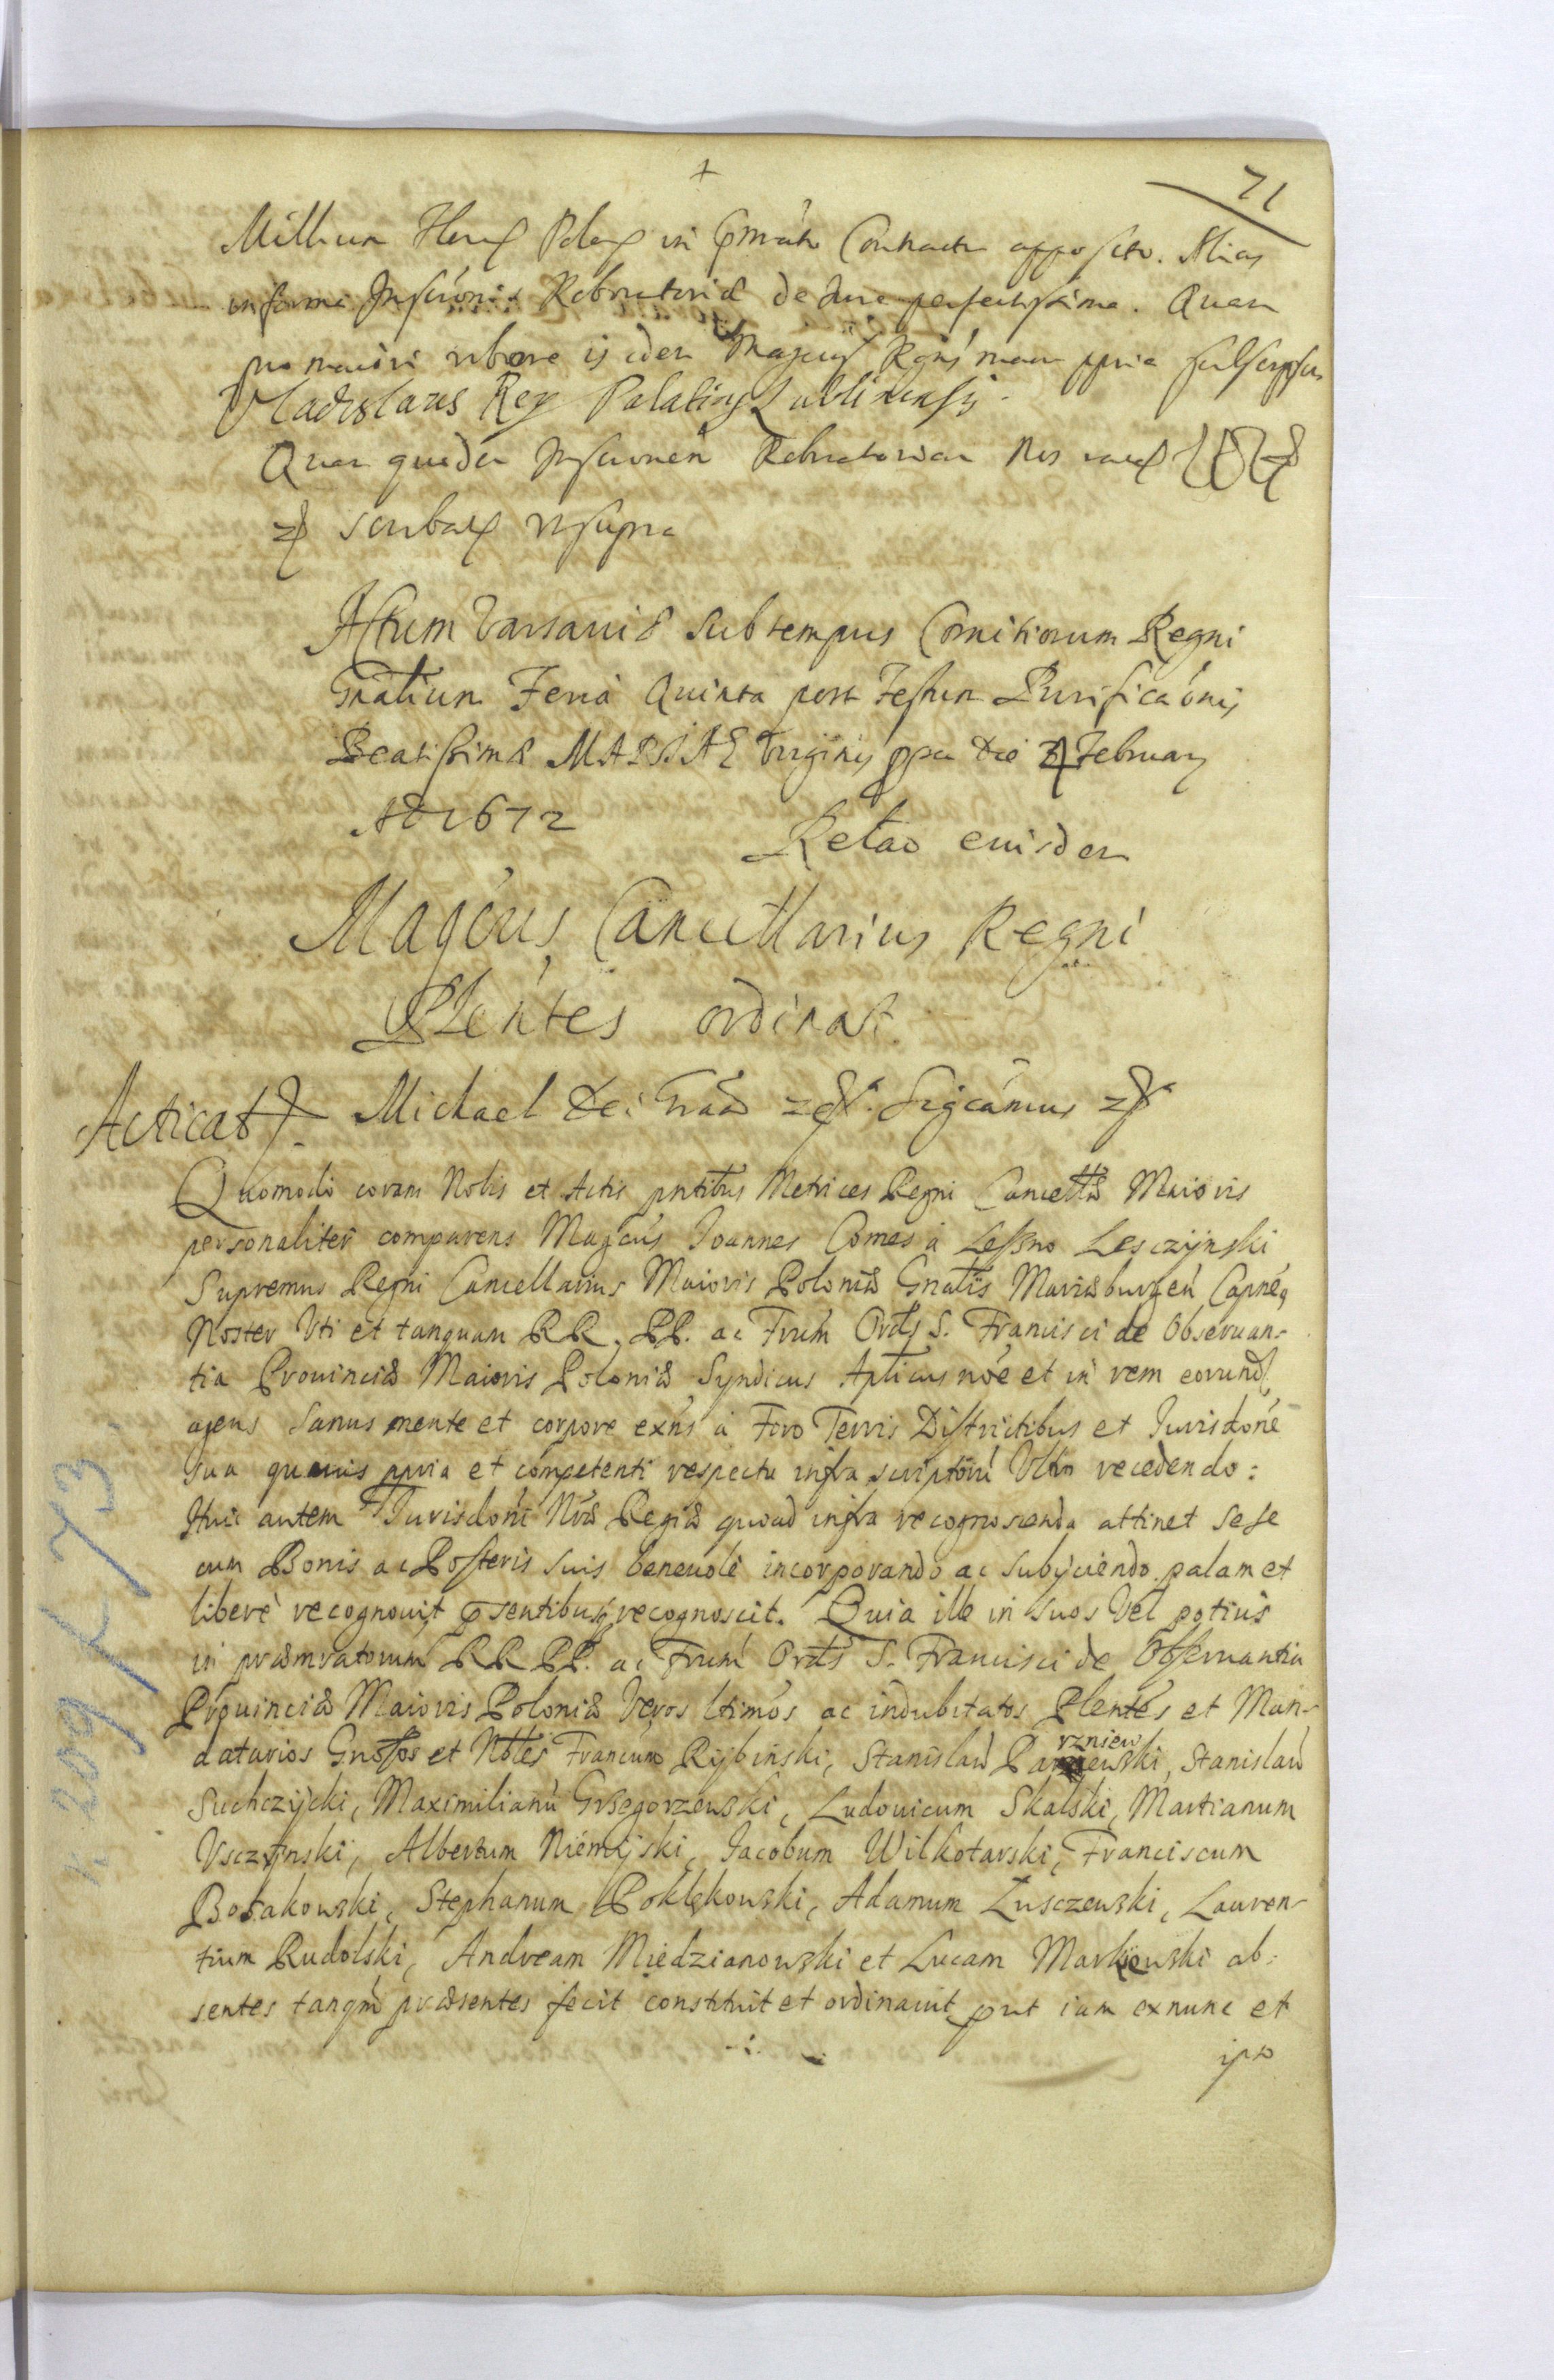 71
Millium Flenor Polon in Contractu apposito. Alias
in forma Inscriónis Roboratoriæ de Jure perfectissima. Quam
pro maiori robore is idem Magcus Recogns manu ppria subscripsit
Vladislaus Rey Palatinus Lublinensis
Quam quidem Inscrionem Roboratoriam Nos
scribatur ut supra
Actum Varsaviæ sub tempus Comitiorum Regni
Gnãlium Feria Quinta post Festum Purificaónis
Beatissimæ MARIAE Virginis ppa die 4 February
AD 1672
Relao eiusdem
Magćus Cancellarius Regni
Plentes ordinat
Acticat Michael Dei Graã Sigcámus
Quomodo coram Nobis et Actis pntibus Metrices Regni Cancellæ Maioris
personaliter comparens Magćus Joannes Comes á Leszno Lesczÿnski
Supremus Regni Cancellarius Maioris Poloniæ Gnalis Mariæburgeń Capneg
Noster Vti et tanquam RR. PP. ac Frum Ordis S. Francisci de Obseruan-
tia Prouinciæ Maioris Poloniæ Syndicus Aplicus nóe et in rem eorund
agens sanus mente et corpore exńs á Foro Terris Districtibus et Jurisdońe
sua quauis ppria et competenti respectu infra scriptorú Vltro recedendo:
Huic autem Jurisdońi Nræ Regiæ quoad infra recognoscenda attinet sese
cum Bonis ac Posteris suis beneuolè incorporando ac subÿciendo palam et
liberè recognouit psentibusq recognoscit. Quia ille in suos Vel potius
in præmratorum RR PP. ac Frum Ordis S. Francisci de Obseruantia
Prouinciæ Maioris Poloniæ Veros ltimos ac indubitatos Plentes et Man-
datarios Gnosos et Nbles Francum Rÿbinski, Stanislaú Parzniewski, Stanislaú
Suchczÿcki, Maximilianú Grzegorzewski, Ludouicum Skalski, Martianum
Vsczÿnski, Albertum Niemÿski, Jacobum Wilkotarski, Franciscum
Bosakowski, Stephanum Poklękowski, Adamum Łusczewski, Lauren-
tium Rudolski, Andream Miedzianowski et Lucam Markowski ab-
sentes tanqm præsentes fecit constituit et ordinauit put iam exnunc et
ipso
k. 209 r. 73.